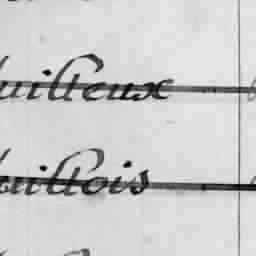 uilleux
uillois